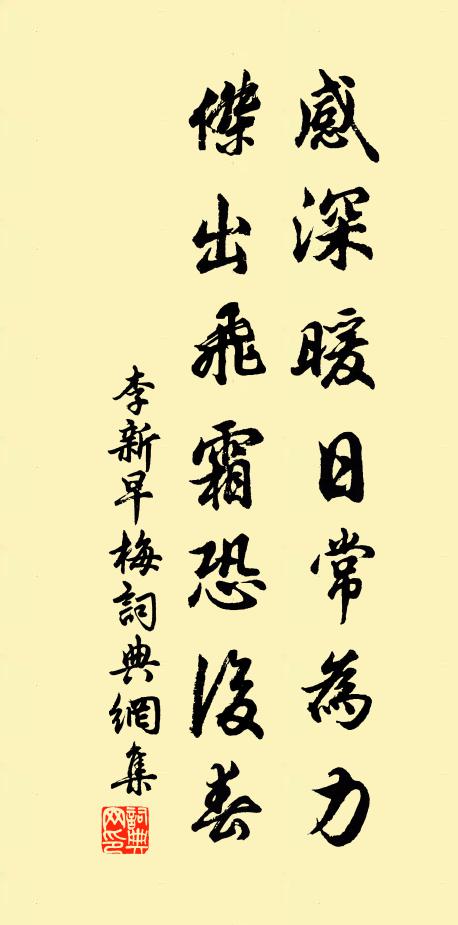 感深暖日常為力
傑出飛霜恐後春
李新早梅詞典網集
詞典
网印